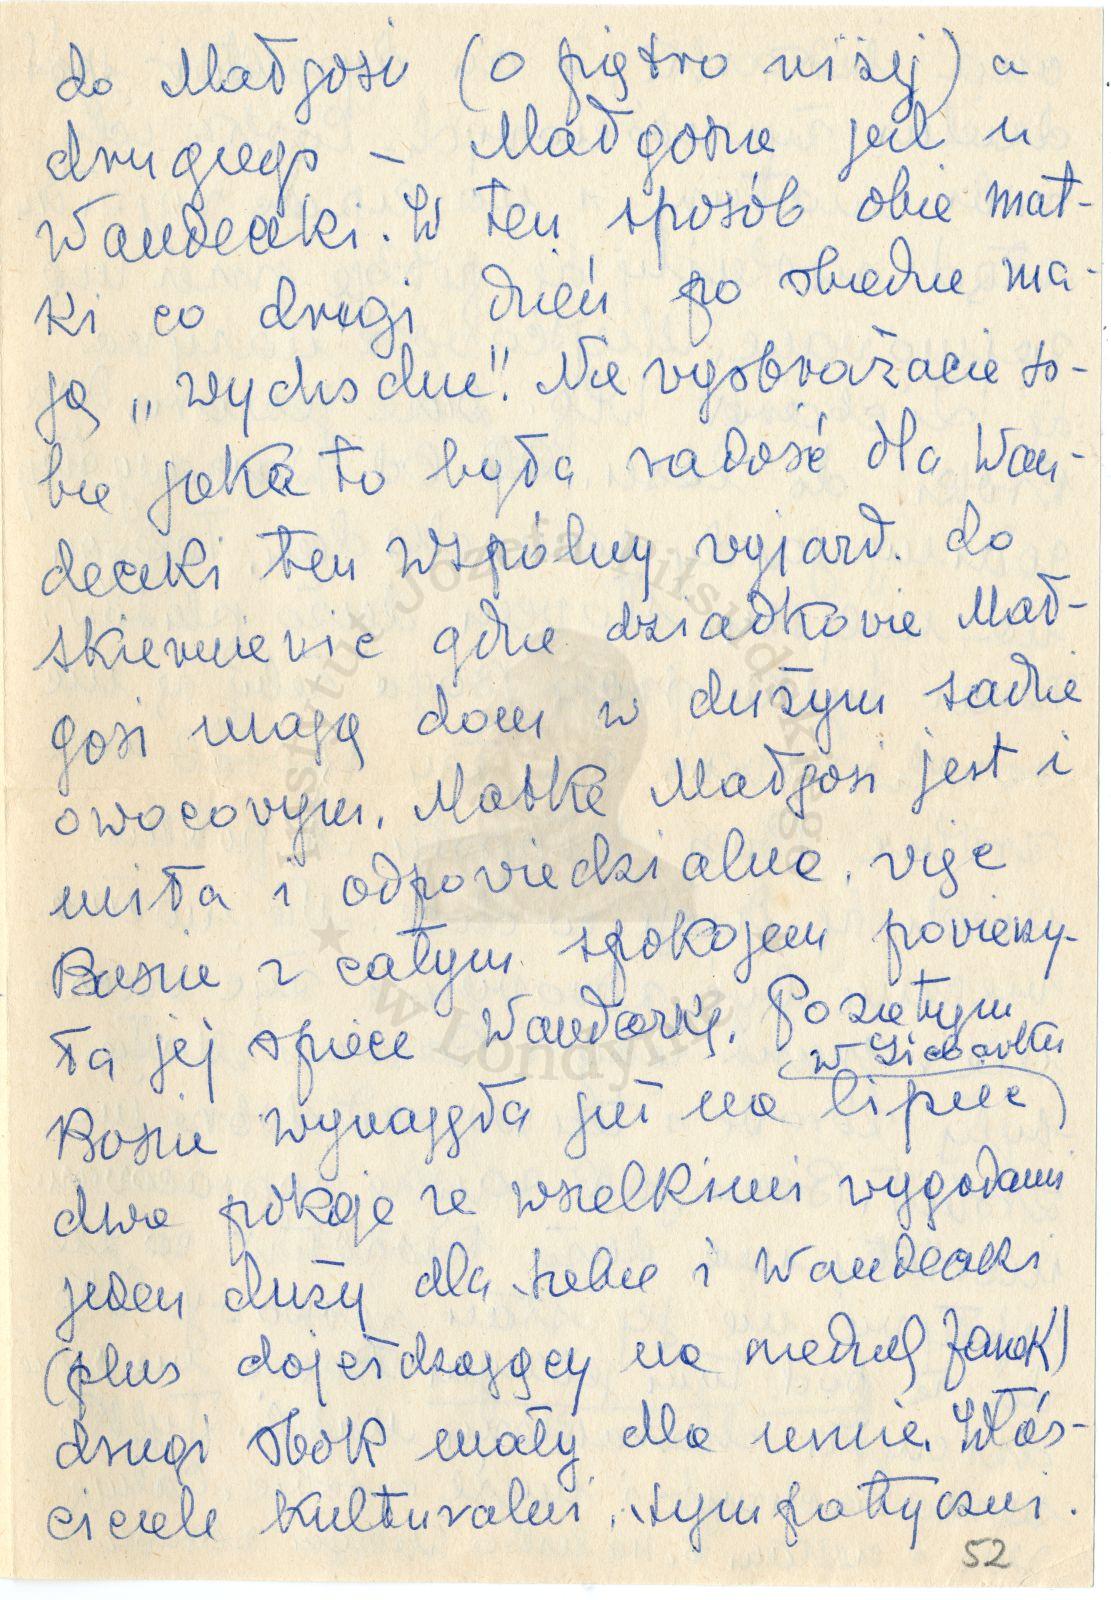 do Małgosi (o piętro niżej) a
drugiego – Małgosia jest u
Wandeczki. W ten sposób obie mat-
ki co drugi dzień po obiedzie ma-
ją „wychodne". Nie wyobrażacie so-
bie jaka to była radość dla Wan-
deczki ten wspólny wyjazd. do
Skierniewic gdzie dziadkowie Mał-
gosi mają dom w dużym sadzie
owocowym. Matka Małgosi jest i
miła i odpowiedzialna, więc
Basia z całym spokojem powierzy-
ła jej opiece Wandeczkę. Pozatym
w
Basia wynajęła już na lipiec
dwa pokoje ze wszelkimi wygodami
jeden duży dla siebie i Wandeczki
(plus dojeżdzający na niedzielę Janek)
drugi obok mały dla mnie. Właś-
ciciele kulturalni, sympatyczni.
52
Instytut Józefa Piłsudskiego
★ w Londynie